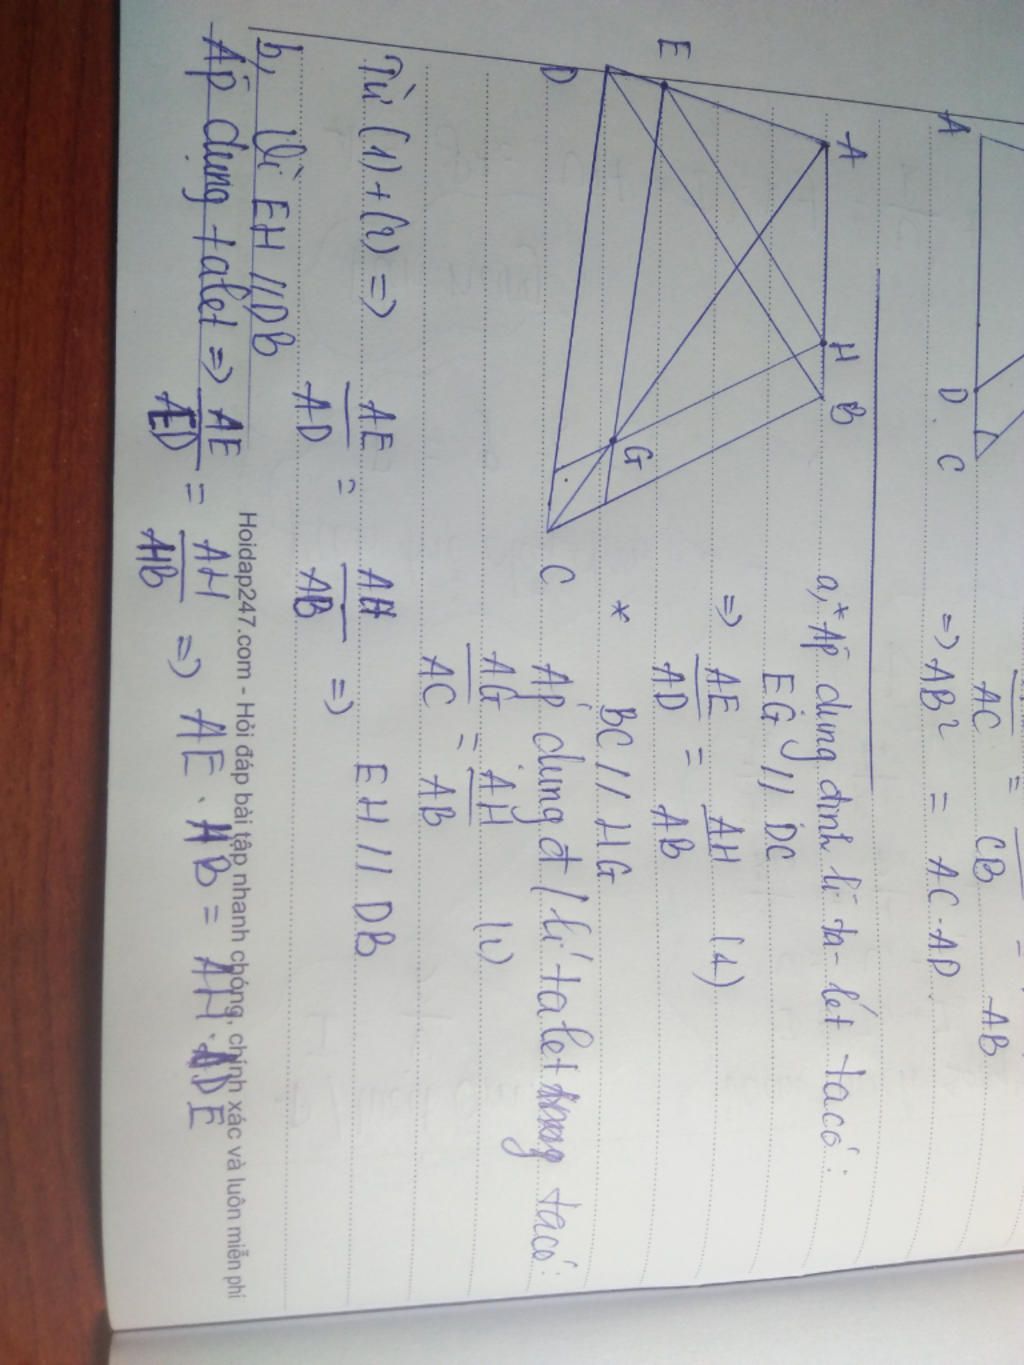 AC = CB = AB
=> AB² = AC.AD
A D C
a, * Áp dụng định lí ta-lét ta có:
EG // DC
=> AE/AD = AH/AB (1)
* BC // HG
Áp dụng đ/lí talet ta có:
AG/AC = AH/AB (2)
A H B
E G
D C
Từ (1)+(2) => AE/AD = AH/AB => EH // DB
b, Vì EH // DB
Áp dụng talet => AE/ED = AH/HB => AE.HB = AH.DE
Hoidap247.com - Hỏi đáp bài tập nhanh chóng, chính xác và luôn miễn phí